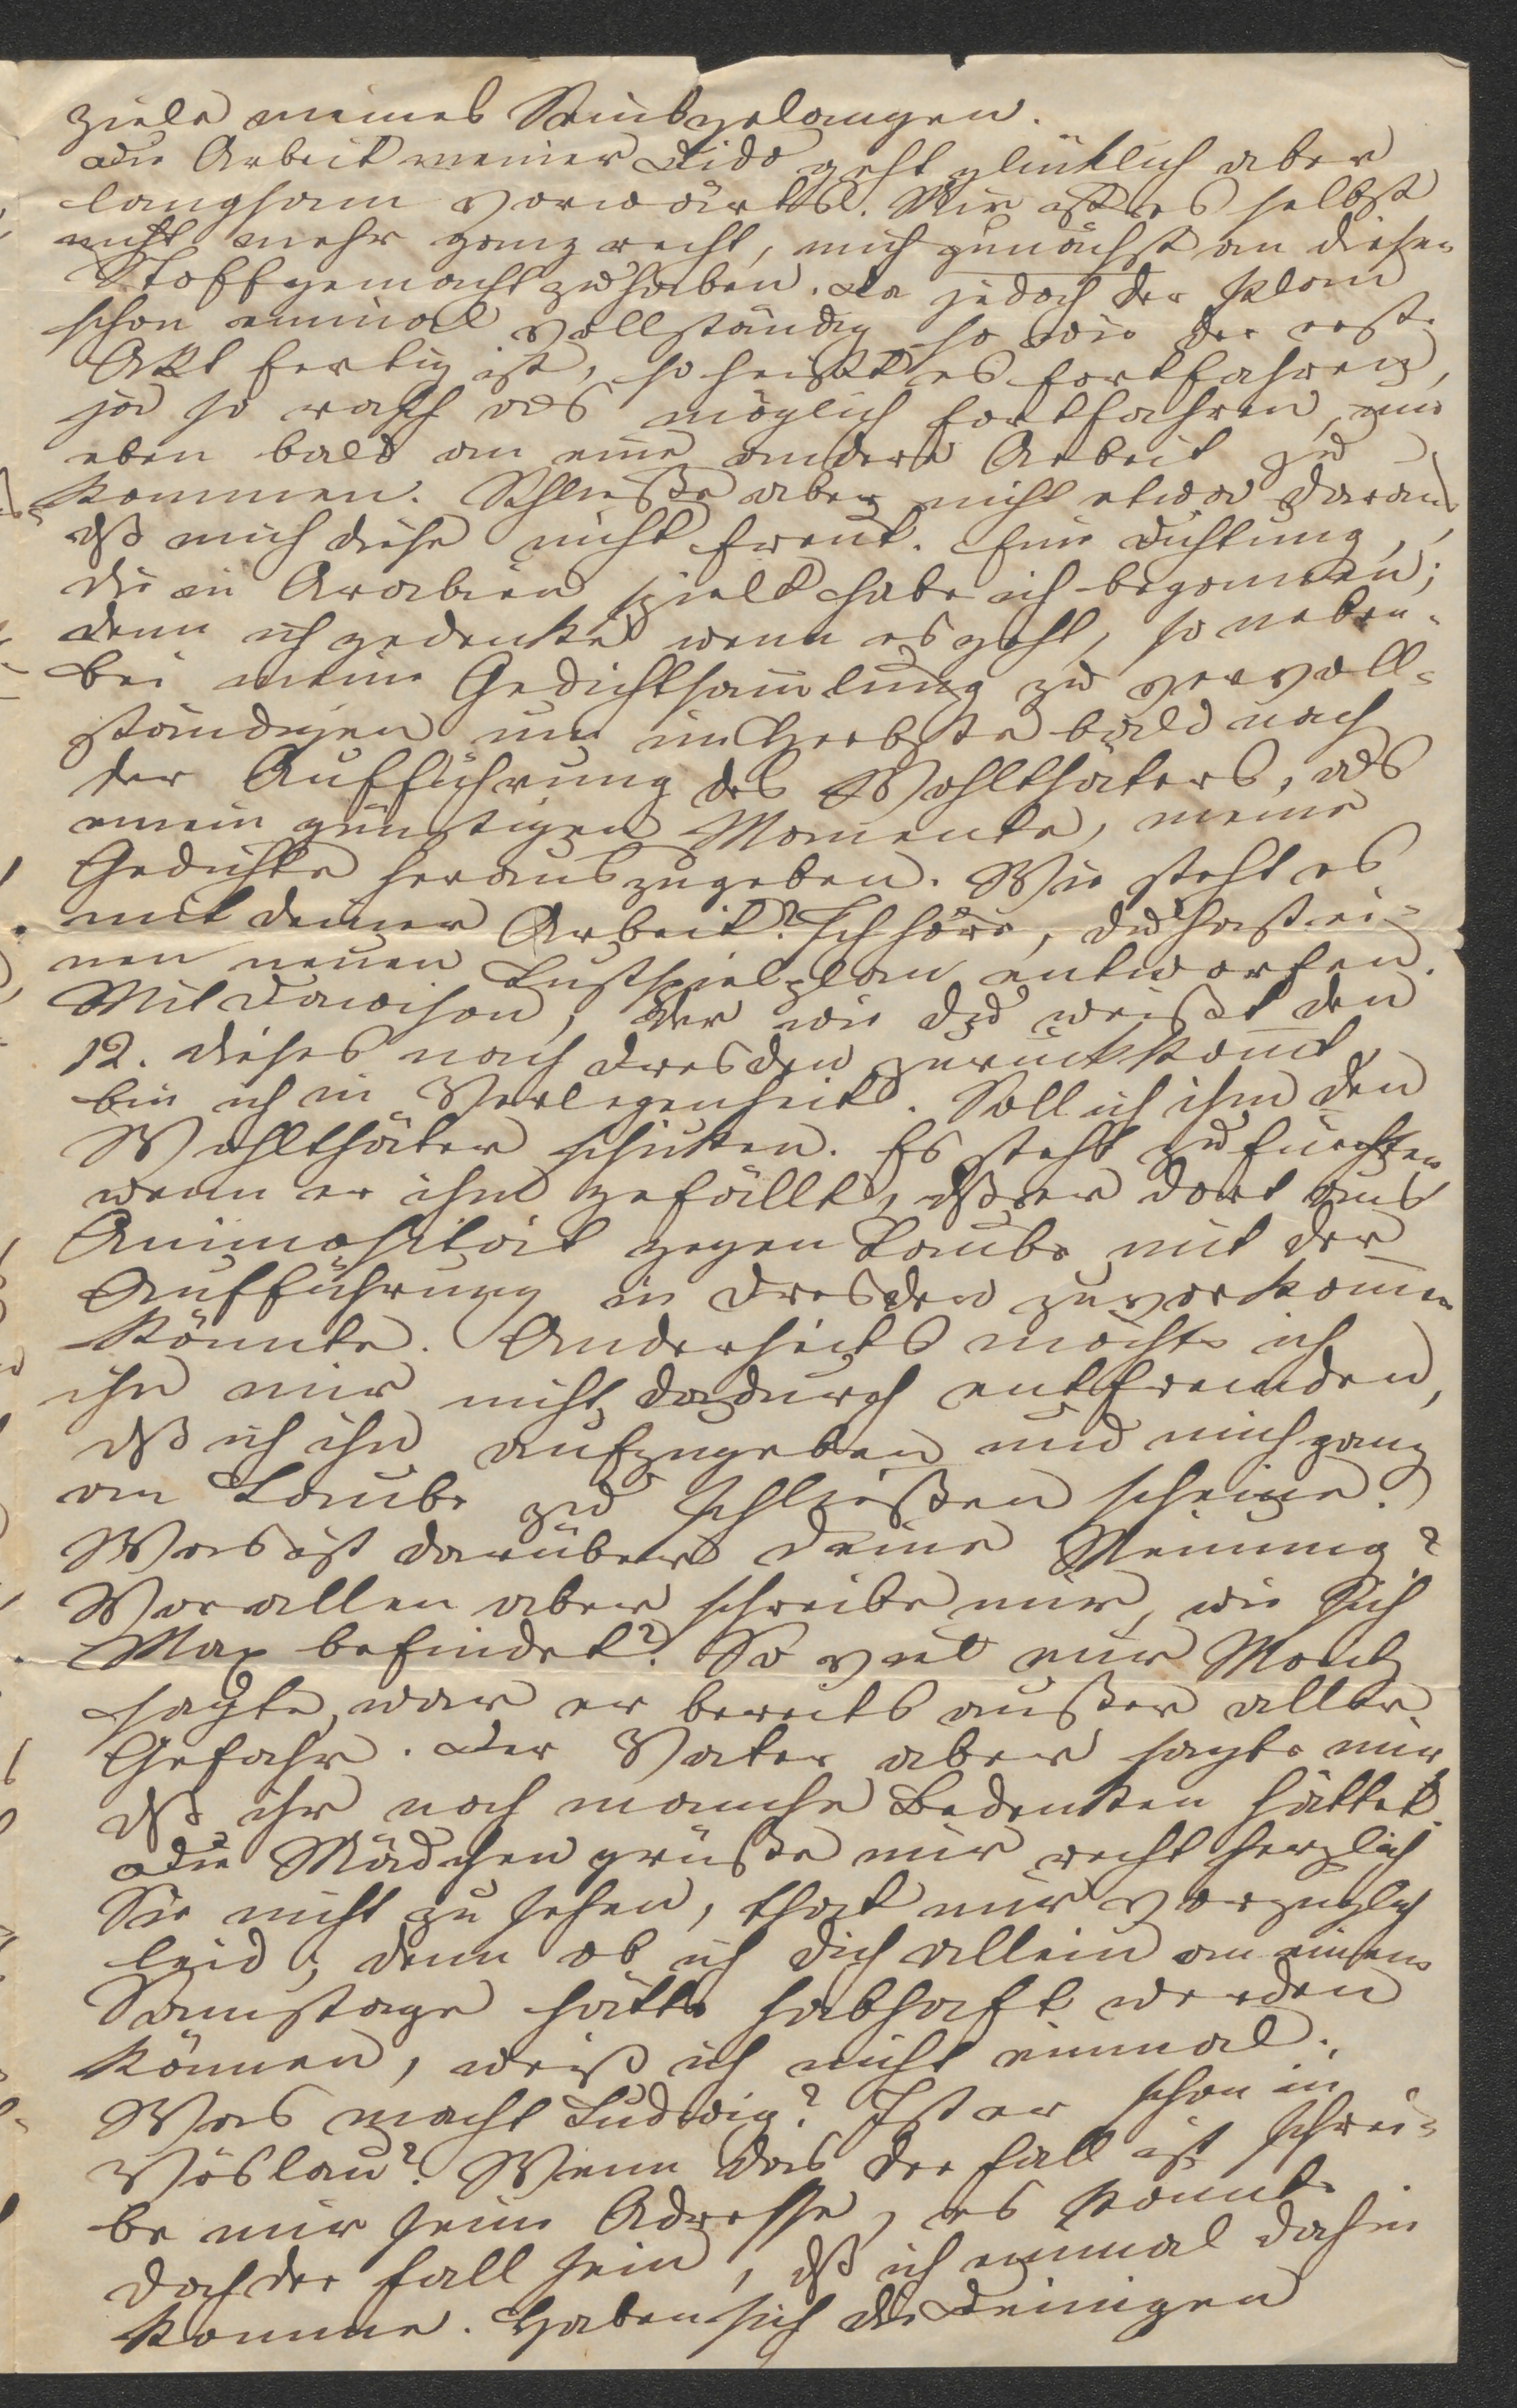 Ziele meines Seins gelangen.
Die Arbeit meiner Dido geht glücklich aber
langsam vorwärts. Mir ist es selbst
nicht mehr ganz recht, mich zunächst an diesen
Stoff gemacht zu haben. Da jedoch der Plan
schon einmal vollständig so wie der erste
Akt fertig ist, so heißt es fortfahren,
ja so rasch als möglich fortfahren, um
eben bald an eine andere Arbeit zu
kommen. Schließe aber nicht etwa daraus
dß mich diese nicht freut. Eine Dichtung,
die in Arabien spielt habe ich begonnen;
denn ich gedenke wenn es geht, so neben-
bei meine Gedichtsam̅lung zu vervoll=
ständigen um im Herbste bald nach
der Aufführung des Wohlthäters, als
einem günstigen Momente, meine
Gedichte herauszugeben. Wie steht es
mit deiner Arbeit? Ich höre, du hast ei=
nen neuen Lustspielplan entworfen.
Mit Dawison, der wie du weißt den
12. dieses nach Dresden zurückkom̅t,
bin ich in Verlegenheit. Soll ich ihm den
Wohlthäter schicken. Es steht zu fürchten
wenn er ihm gefällt, dß er dort aus
Animosität gegen Laube mit der
Aufführung in Dresden zuvorkom̅en
könnte. Anderseits möchte ich
ihn mir nicht dadurch entfremden,
dß ich ihn aufzugeben und mich ganz
an Laube zu schließen scheine.
Was ist darüber deine Meinung?
Vor allen aber schreibe mir, wie sich
Max befindet? So viel mir Moritz
sagte, war er bereits außer aller
Gefahr. Der Vater aber sagte mir,
dß ihr noch manche Bedenken hättet.
Die Mädchen grüße mir recht herzlich
Sie nicht zu sehen, that mir vorzüglich
leid; denn ob ich dich allein an einem
Samstage hätte habhaft werden
können, weiß ich nicht einmal.
Was macht Ludwig? Ist er schon in
Vöslau? Wenn das der Fall ist schrei=
be mir seine Adresse, es könnte
doch der Fall sein, dß ich einmal dahin
komme. Haben sich die Deinigen